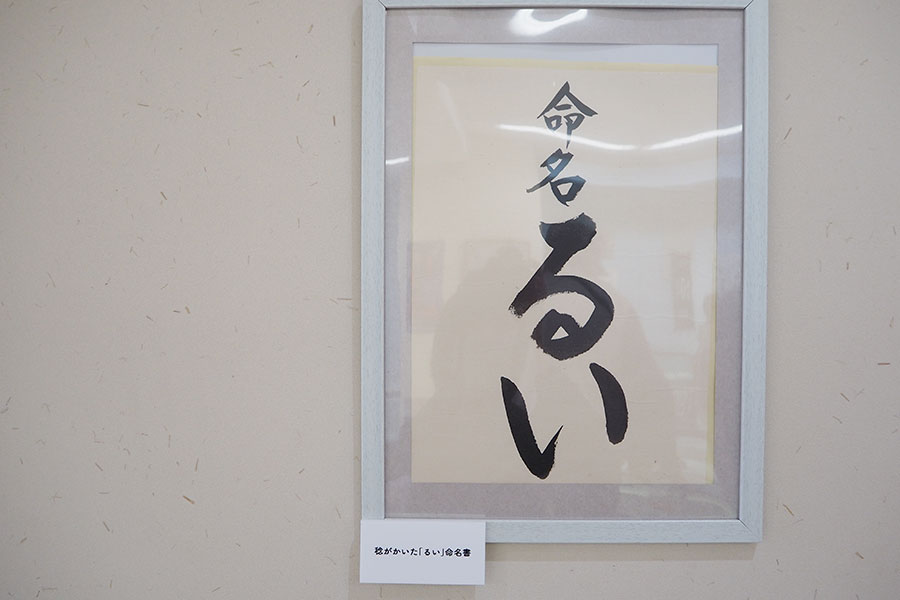 命名
るい
稔がかいた「るい」命名書